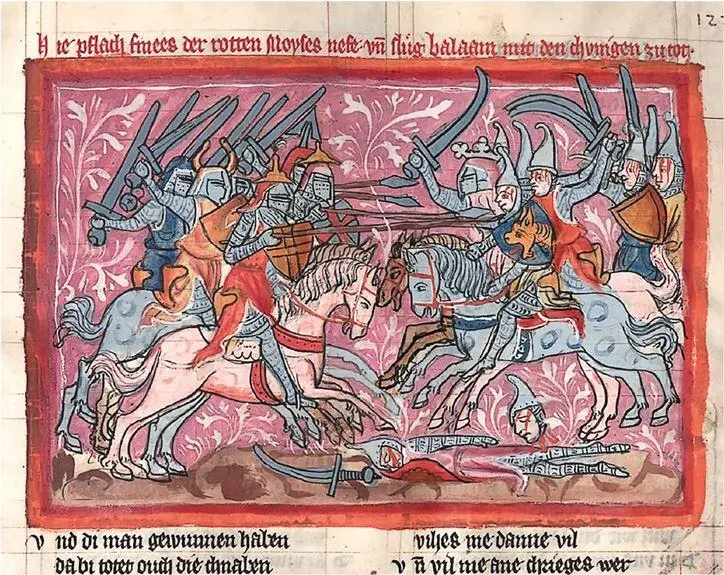 12
Hie pflach finees der rotten Moyses nefe· vn̄ slůg balaam mit den chunigen zu tot·
Vnd di man gewunnen haben
da bi totet ouch die chnaben
vihes me danne vil
Vn̄ vil me ane chrieges wer